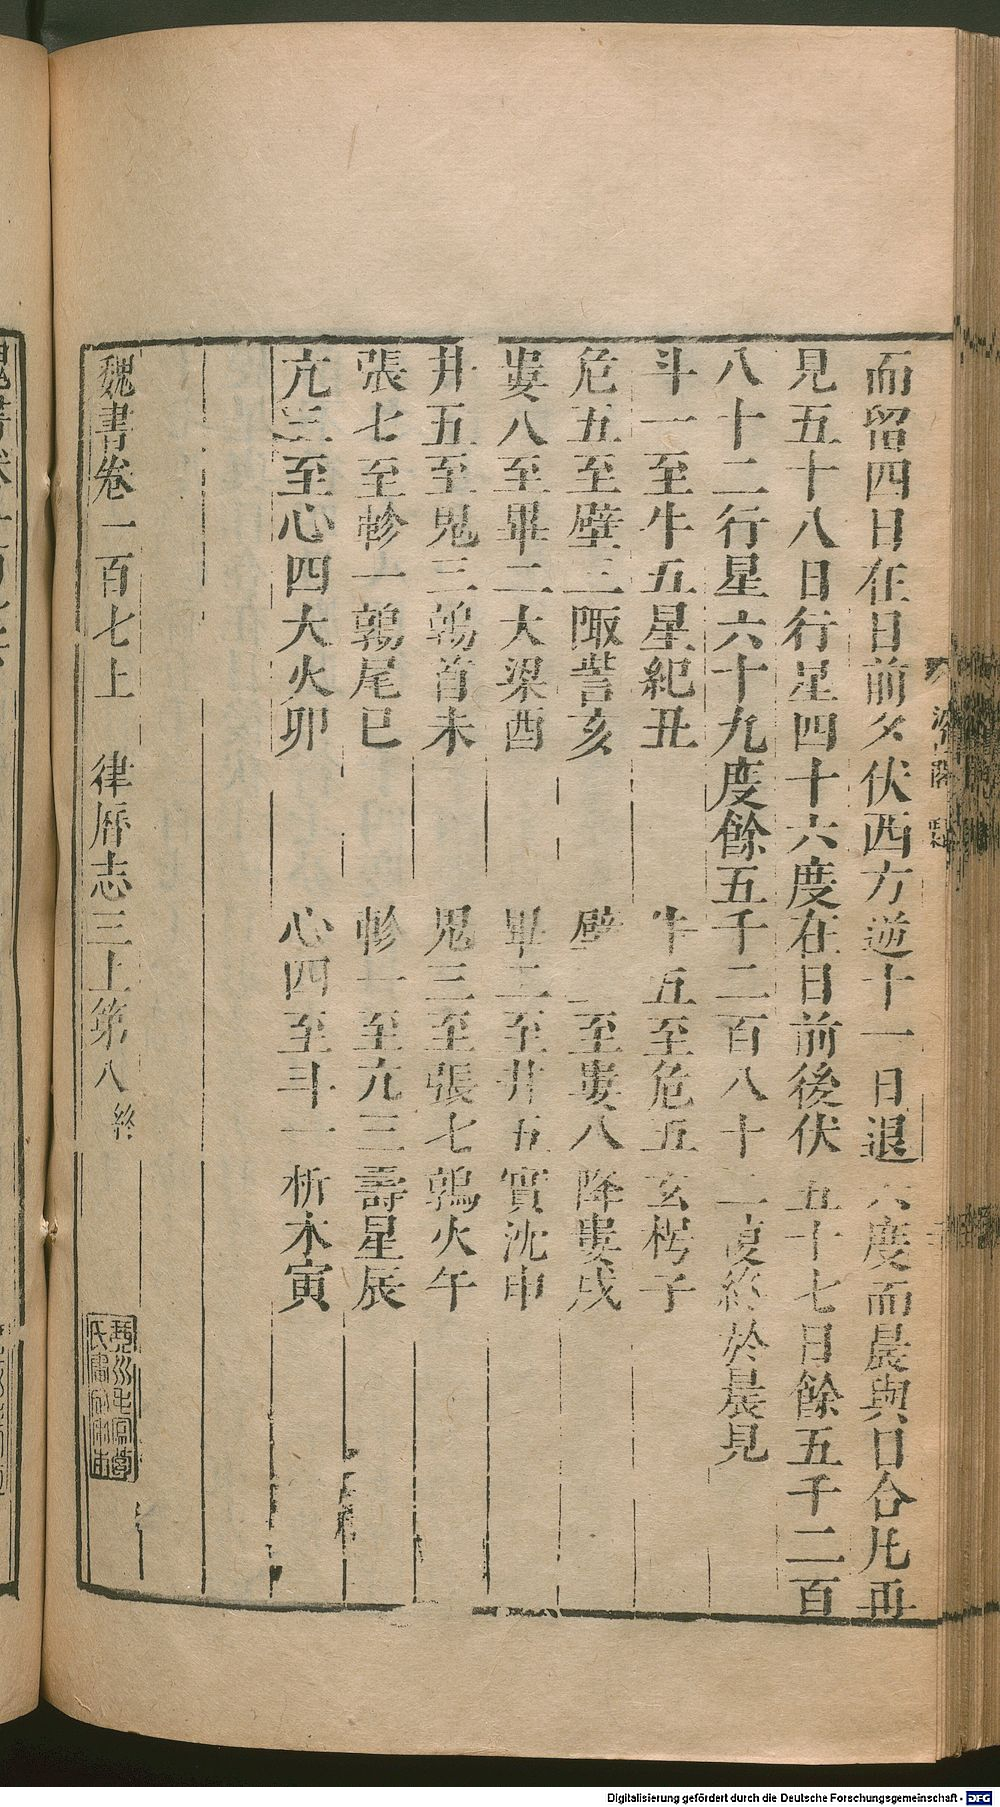 而留四日在日前夕伏西方逆十一日退六度而晨與日合凡再
見五十八日行星四十六度在日前後伏五十七日餘五千二百
八十二行星六十九度餘五千二百八十一復終於晨見
斗一至牛五星紀丑　牛五至危五玄枵子
危五至壁三陬訾亥　壁三至婁八降婁戌
婁八至畢二大梁酉　畢二至井五實沈申
井五至鬼三鶉首未　鬼三至張七鶉火午
張七至軫一鶉尾巳　軫一至亢三壽星辰
亢三至心四大火卯　心四至斗一析木寅
魏書卷一百七上　律曆志三上第八終
Digitalisierung gefördert durch die Deutsche Forschungsgemeinschaft - DFG